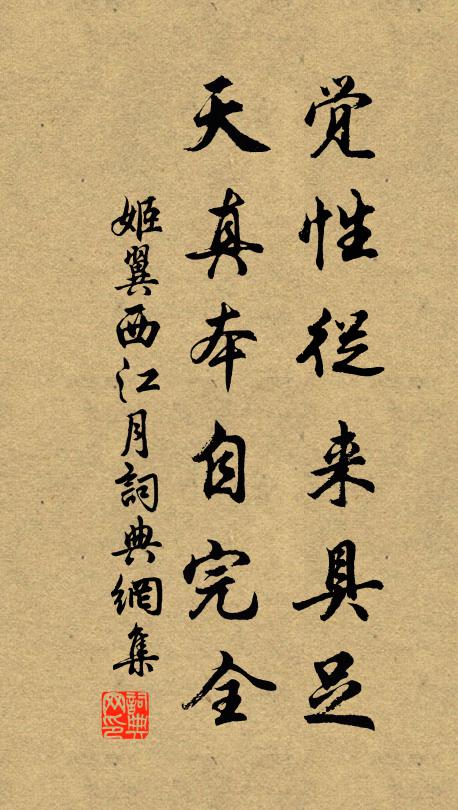 觉性從来具足
天真本自完全
姬翼西江月詞典網集
詞典
网印